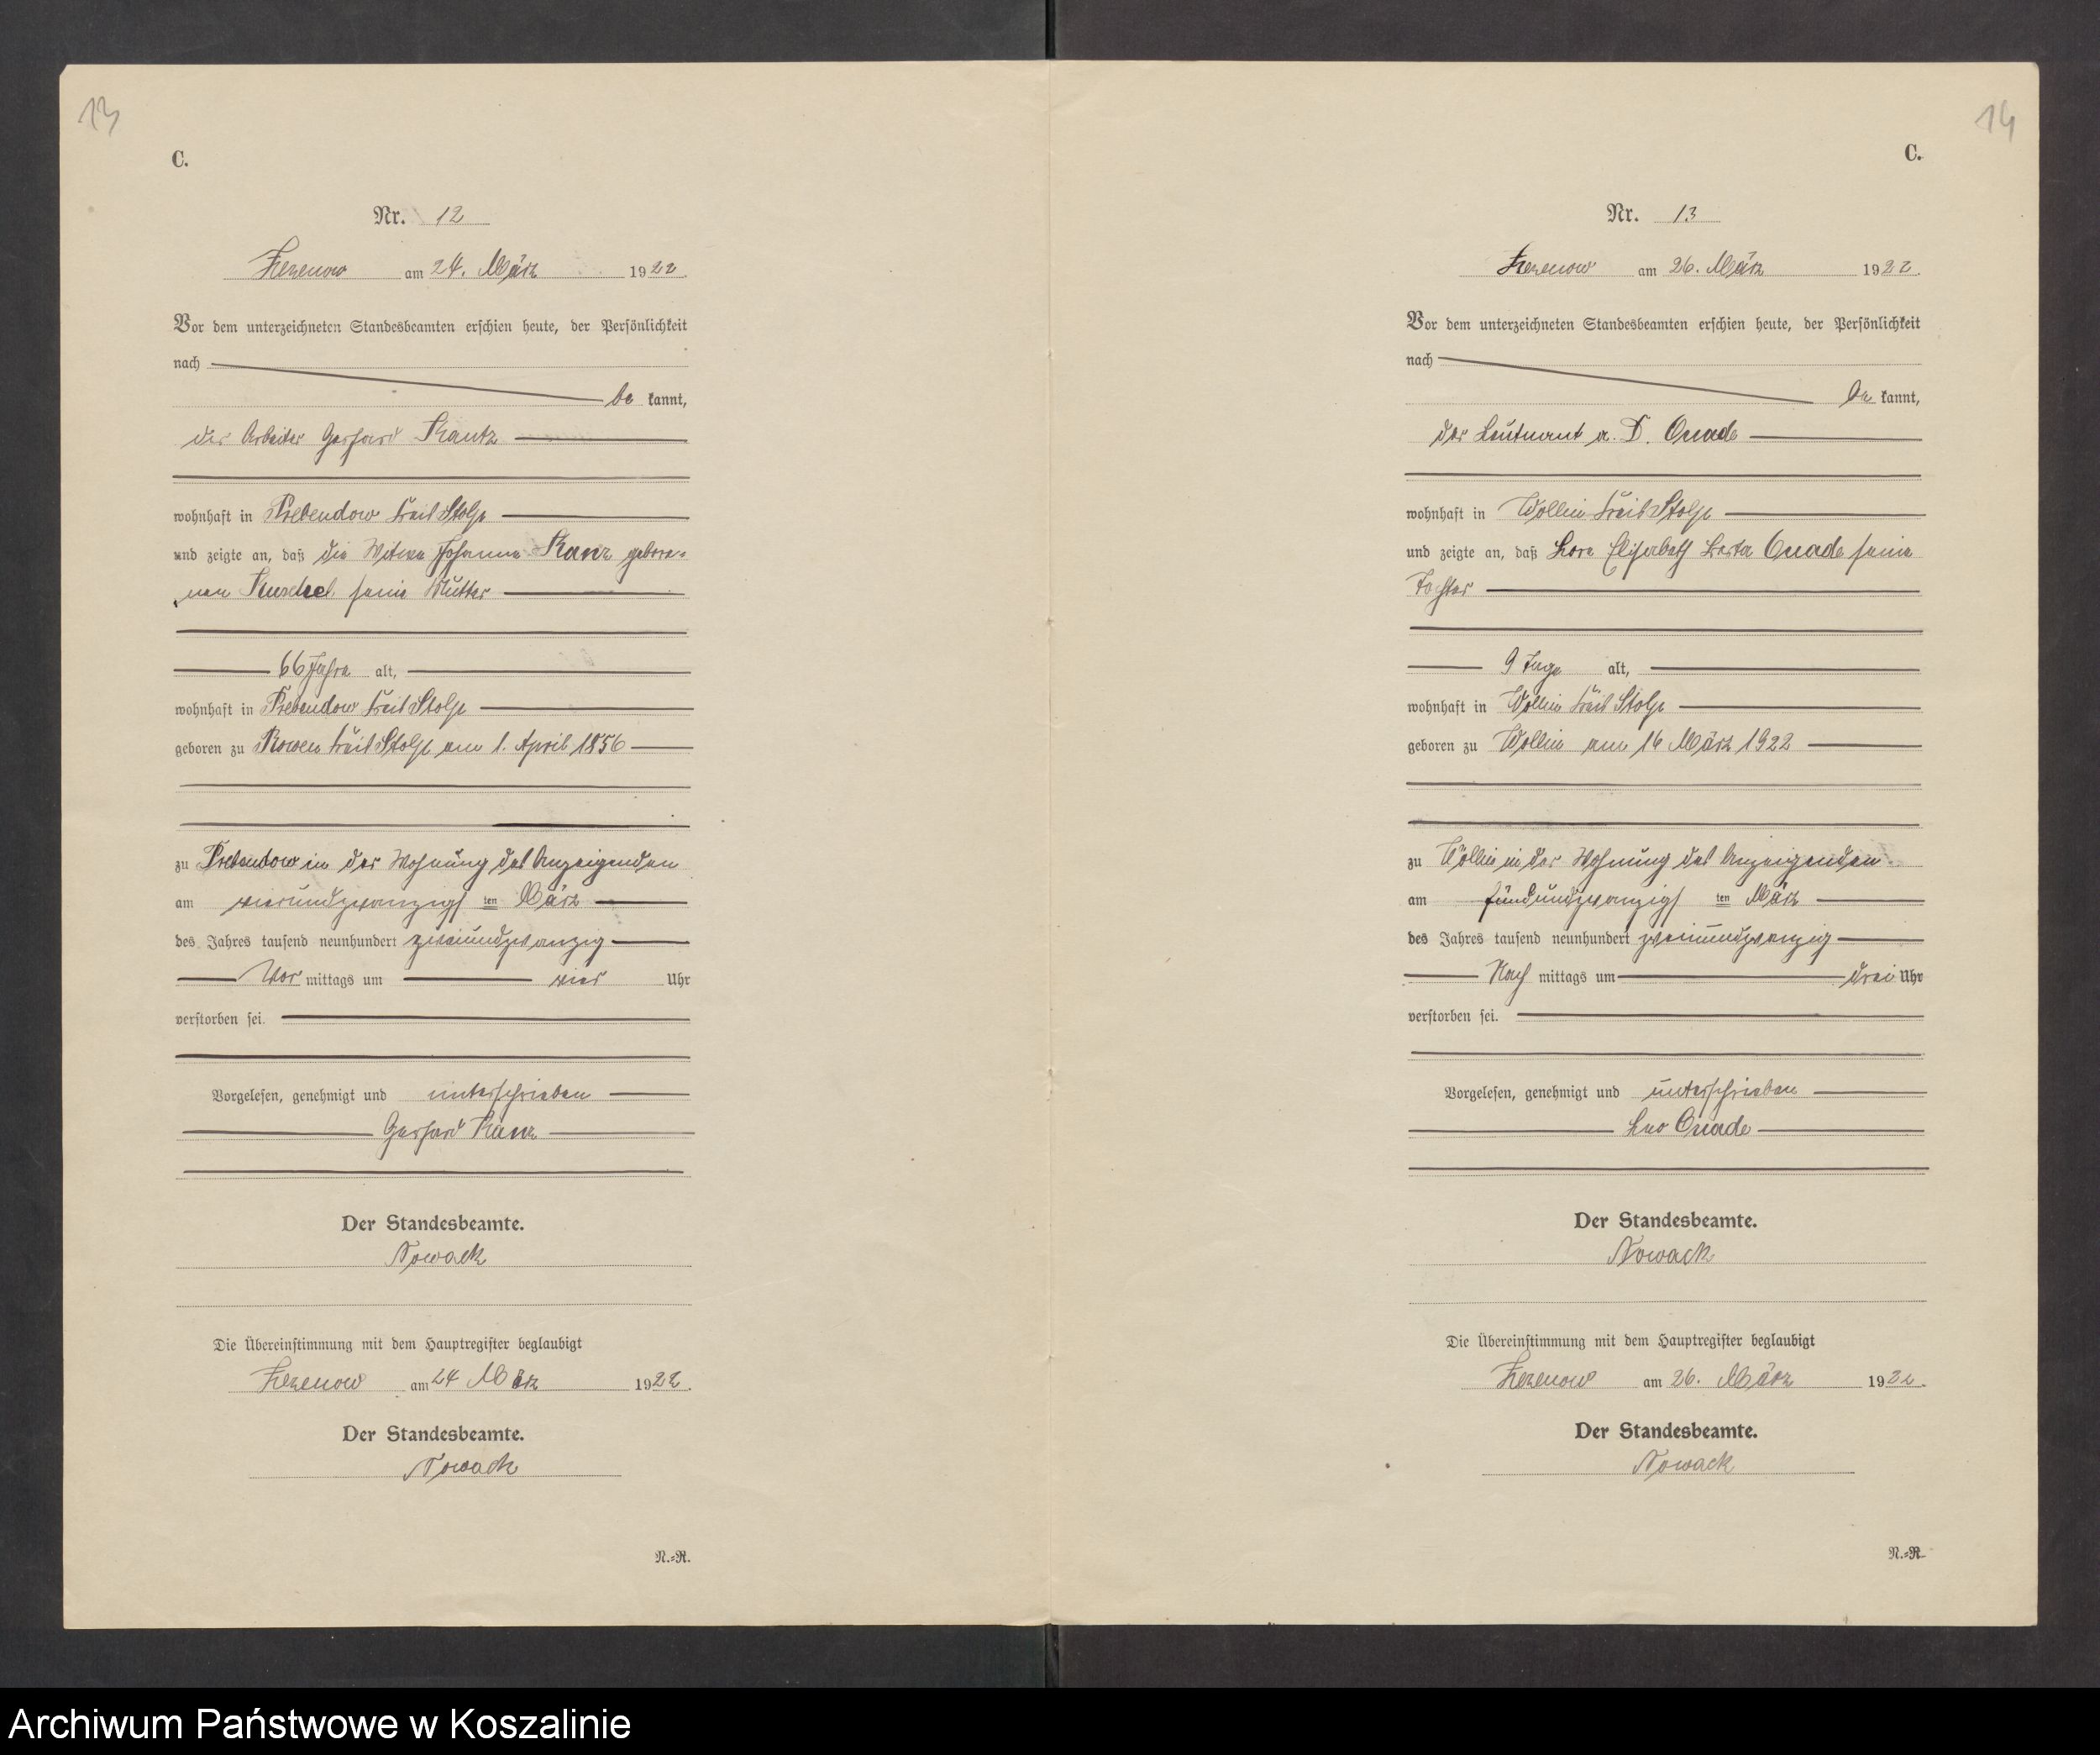 13
C.
Nr. 12
Zezenow am 24. März 1922.
Vor dem unterzeichneten Standesbeamten erschien heute, der Persönlichkeit
nach
be kannt,
der Arbeiter Gerhard Kantz
wohnhaft in Prebendow Kreis Stolp
und zeigte an, daß die Witwe Johanna Kanz gebore-
nen Kuschel seine Mutter
66 Jahre alt,
wohnhaft in Prebendow Kreis Stolp
geboren zu Rowen Kreis Stolp am 1. April 1856
zu Prebendow in der Wohnung des Anzeigenden
am vierundzwanzigsten März
des Jahres tausend neunhundert zweiundzwanzig
Vor mittags um vier Uhr
verstorben sei.
Vorgelesen, genehmigt und unterschrieben
Gerhard Kanz
Der Standesbeamte.
Nowack
Die Übereinstimmung mit dem Hauptregister beglaubigt
Zezenow am 24 März 1922.
Der Standesbeamte.
Nowack
N.=R.
14
C.
Nr. 13
Zezenow am 26. März 1922.
Vor dem unterzeichneten Standesbeamten erschien heute, der Persönlichkeit
nach
be kannt,
der Leutnant a. D. Quade
wohnhaft in Wollin Kreis Stolp
und zeigte an, daß Lore Elisabeth Quade seine
Tochter
9 Tage alt,
wohnhaft in Wollin Kreis Stolp
geboren zu Wollin am 16 März 1922
zu Wollin in der Wohnung des Anzeigenden
am fünfundzwanzigsten März
des Jahres tausend neunhundert zweiundzwanzig
Nach mittags um drei Uhr
verstorben sei.
Vorgelesen, genehmigt und unterschrieben
Leo Quade
Der Standesbeamte.
Nowack
Die Übereinstimmung mit dem Hauptregister beglaubigt
Zezenow am 26. März 1922.
Der Standesbeamte.
Nowack
N.=R.
Archiwum Państwowe w Koszalinie